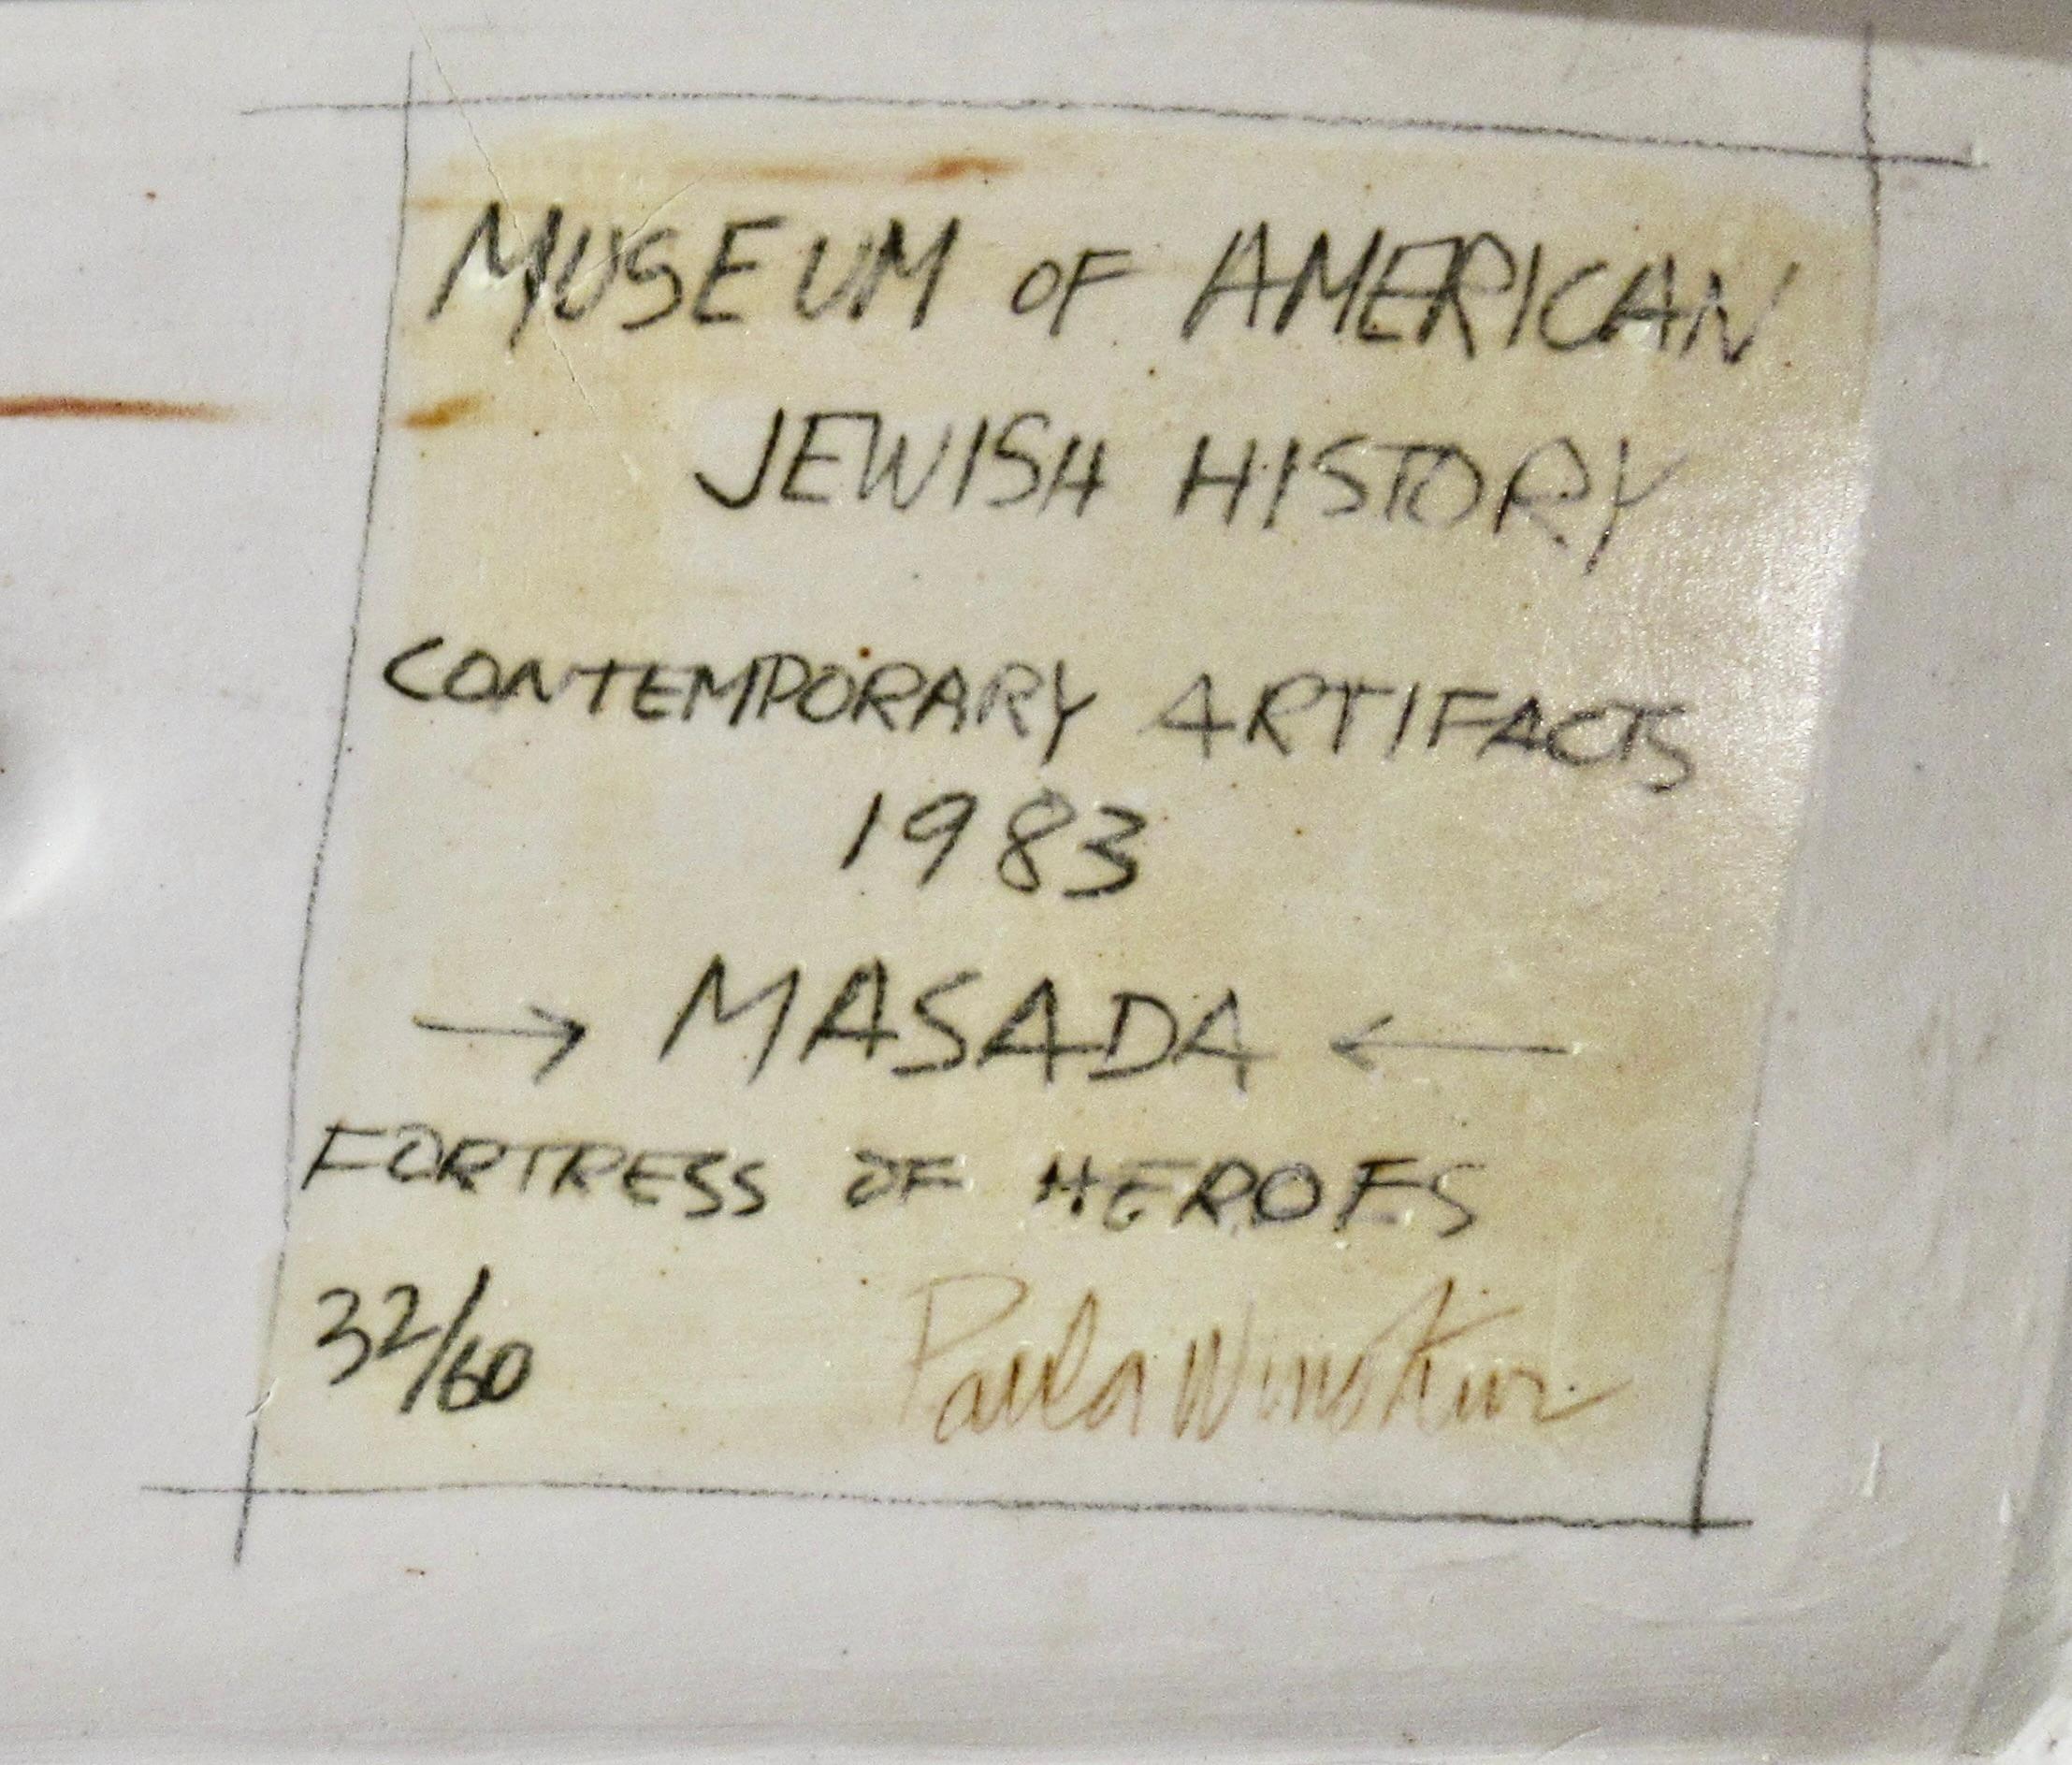 MUSEUM OF AMERICAN
JEWISH HISTORY
CONTEMPORARY ARTIFACTS
1983
→ MASADA ←
FORTRESS OF HEROES
32/60 Paula Winokur